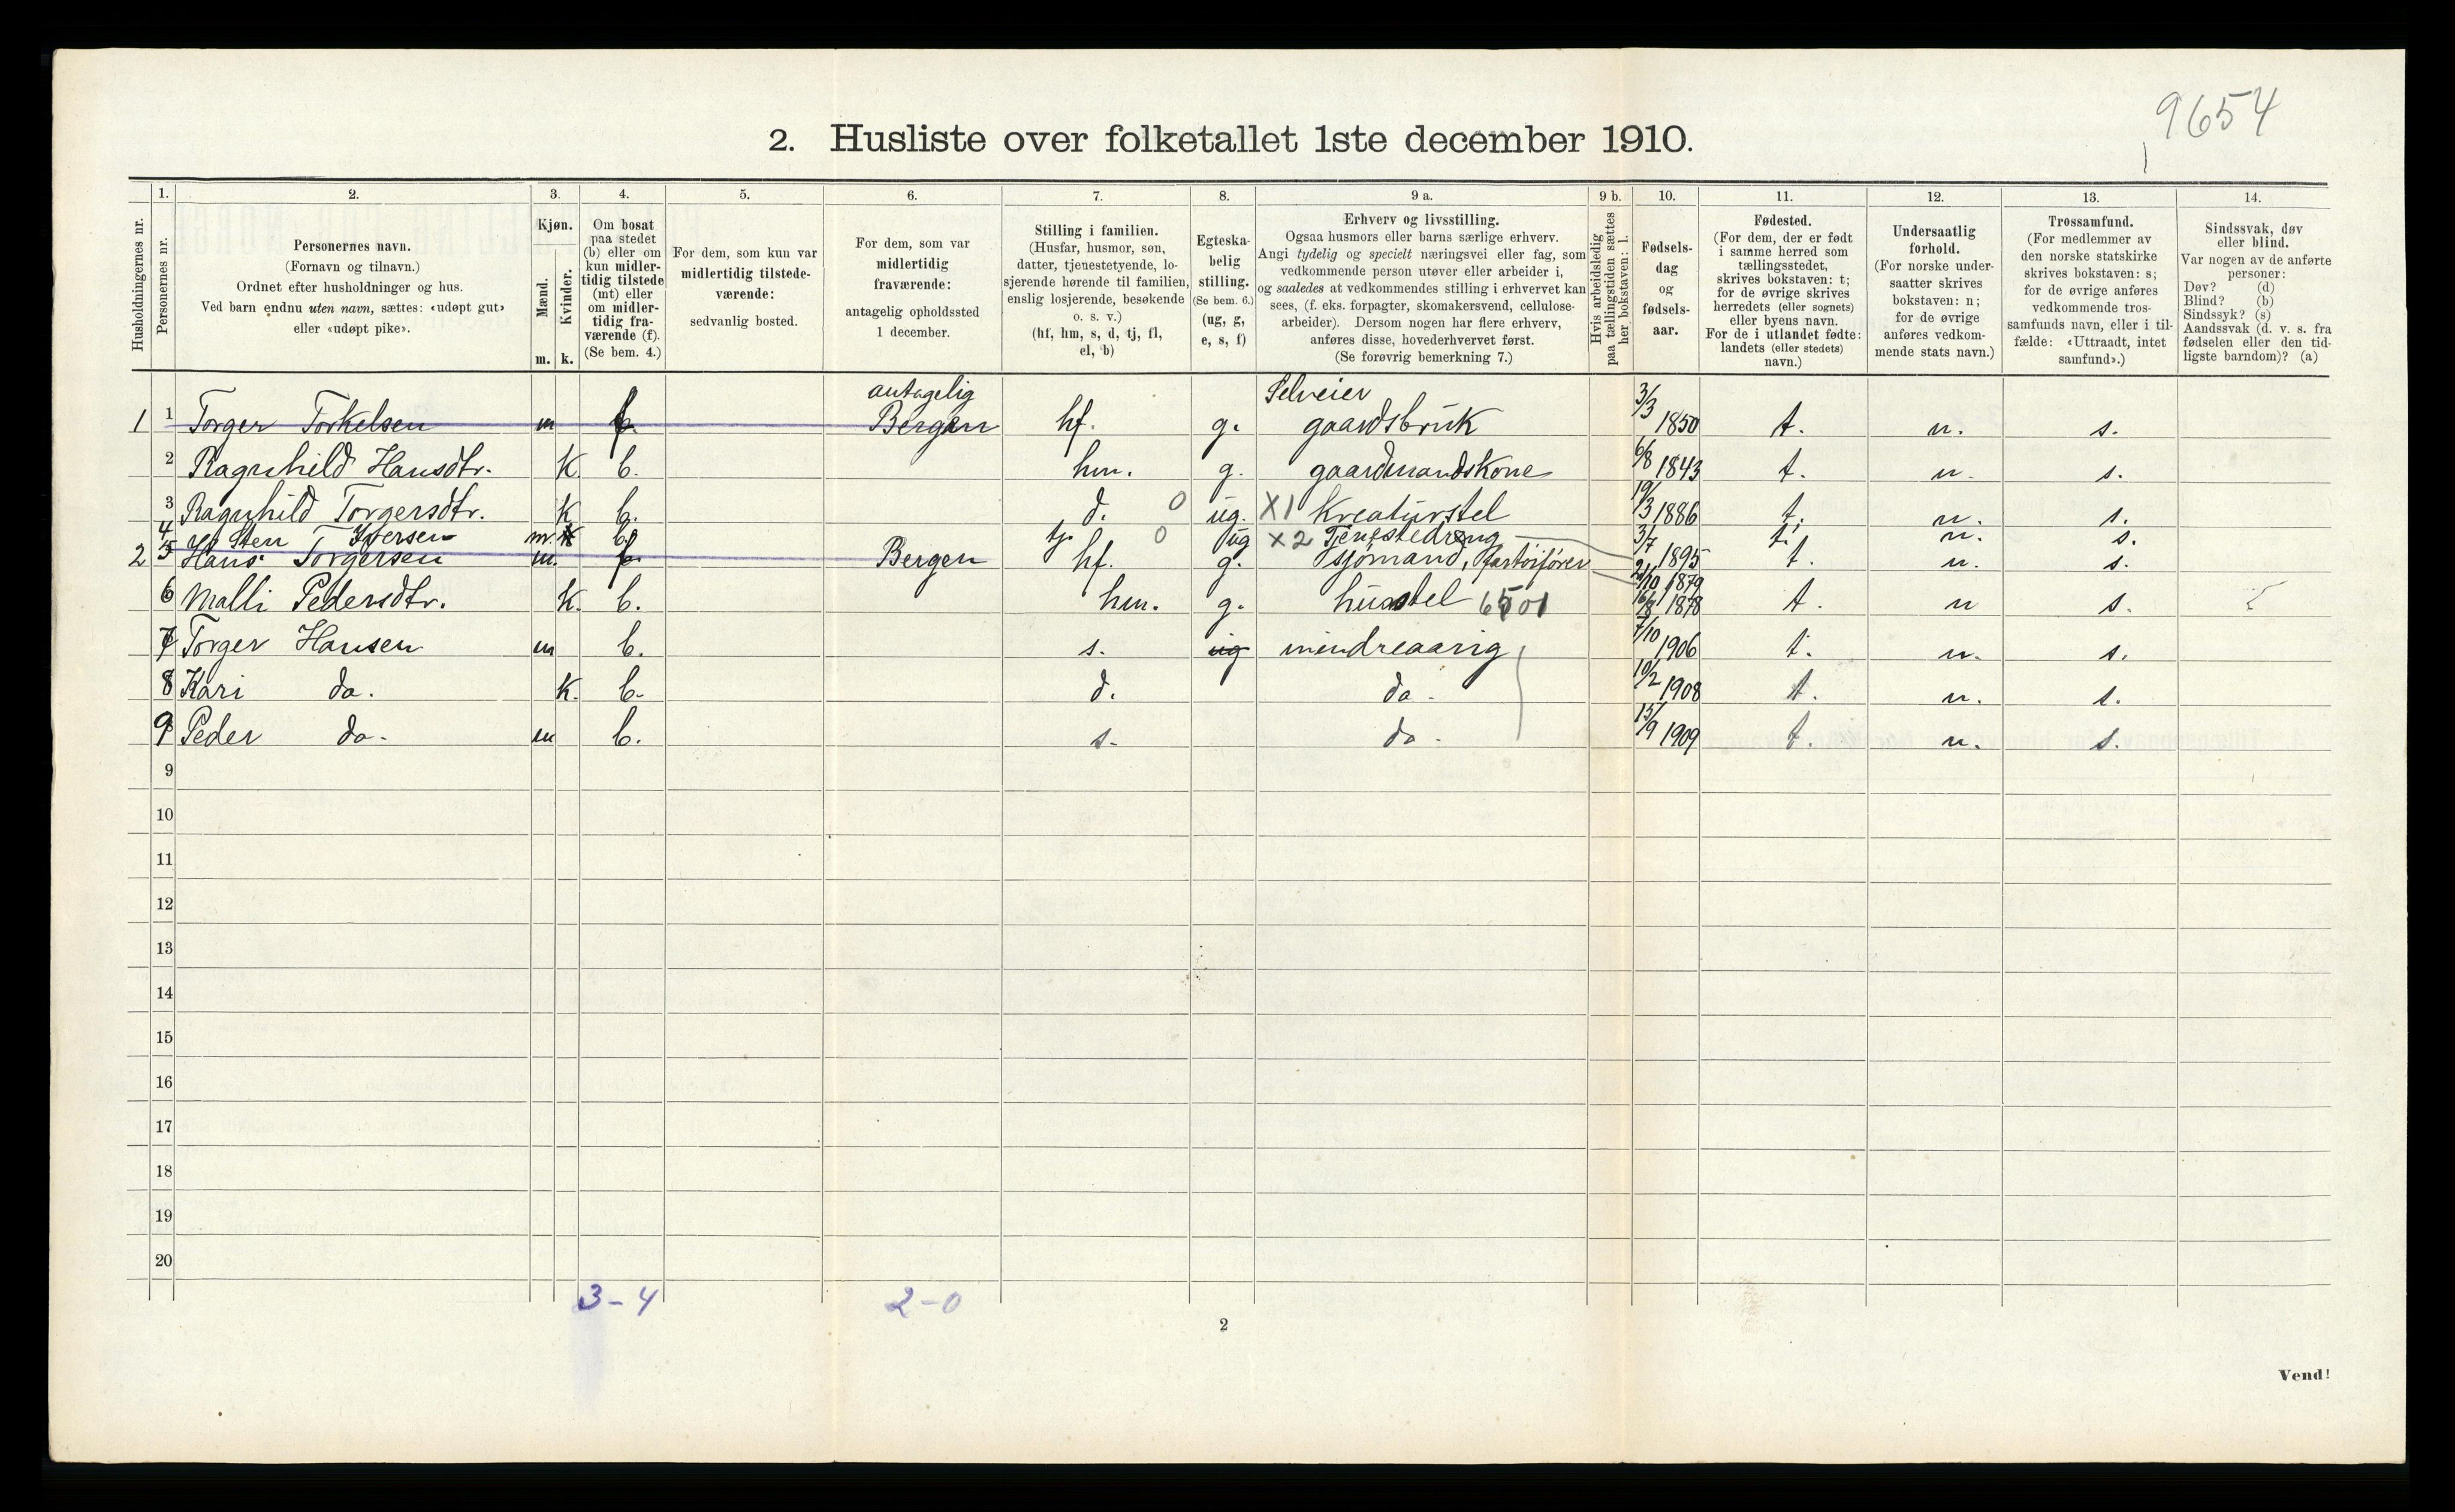 9654
2. Husliste over folketallet 1ste december 1910.
Husholdningernes nr.
1.
Personernes nr.
2.
Personernes navn.
(Fornavn og tilnavn.)
Ordnet efter husholdninger og hus.
Ved barn endnu uten navn, sættes: «udøpt gut»
eller «udøpt pike».
3.
Kjøn.
Mænd.
Kvinder.
m. k.
4.
Om bosat
paa stedet
(b) eller om
kun midler-
tidig tilstede
(mt) eller
om midler-
tidig fra-
værende (f).
(Se bem. 4.)
5.
For dem, som kun var
midlertidig tilstede-
værende:
sedvanlig bosted.
6.
For dem, som var
midlertidig
fraværende:
antagelig opholdssted
1 december.
7.
Stilling i familien.
(Husfar, husmor, søn,
datter, tjenestetyende, lo-
sjerende hørende til familien,
enslig losjerende, besøkende
o. s. v.)
(hf, hm, s, d, tj, fl,
el, b)
8.
Egteska-
belig
stilling.
(Se bem. 6.)
(ug, g,
e, s, f)
9 a.
Erhverv og livsstilling.
Ogsaa husmors eller barns særlige erhverv.
Angi tydelig og specielt næringsvei eller fag, som
vedkommende person utøver eller arbeider i,
og saaledes at vedkommendes stilling i erhvervet kan
sees, (f. eks. forpagter, skomakersvend, cellulose-
arbeider). Dersom nogen har flere erhverv,
anføres disse, hovederhvervet først.
(Se forøvrig bemerkning 7.)
9 b.
Hvis arbeidsledig
paa tællingstiden sættes
her bokstaven: l.
10.
Fødsels-
dag
og
fødsels-
aar.
11.
Fødested.
(For dem, der er født
i samme herred som
tællingsstedet,
skrives bokstaven: t;
for de øvrige skrives
herredets (eller sognets)
eller byens navn.
For de i utlandet fødte:
landets (eller stedets)
navn.)
12.
Undersaatlig
forhold.
(For norske under-
saatter skrives
bokstaven: n;
for de øvrige
anføres vedkom-
mende stats navn.)
13.
Trossamfund.
(For medlemmer av
den norske statskirke
skrives bokstaven: s;
for de øvrige anføres
vedkommende tros-
samfunds navn, eller i til-
fælde: «Uttraadt, intet
samfund».)
14.
Sindssvak, døv
eller blind.
Var nogen av de anførte
personer:
Døv? (d)
Blind? (b)
Sindssyk? (s)
Aandssvak (d. v. s. fra
fødselen eller den tid-
ligste barndom)? (a)
antagelig Selveier
1 1 Torger Torkelsen m f. Bergen hf. g. gaardsbruk 3/3 1850 t. n. s.
2 Ragnhild Hansdtr. K b. hm. g. gaardmandskone 6/8 1843 t. n. s.
3 Ragnhild Torgersdtr. K b. d. 0 ug. X1 Kreaturstel 19/3 1886 t. n. s.
4 Sten Iversen m. b. tj. 0 ug X2 Tjenestedreng 3/7 1895 t. n. s.
2 5 Hans Torgersen m. f. Bergen hf. g. sjømand, fartøifører 21/10 1879 t. n. s.
6 Malli Pedersdtr. K. b. hm. g. husstel 6501 16/8 1878 t. n s.
7 Torger Hansen m b. s. ug mindreaarig 7/10 1906 t. n. s.
8 Kari do. K. b. d. do. 10/2 1908 t. n. s.
9 Peder do. m b. s. do. 15/9 1909 t. n. s.
9
10
11
12
13
14
15
16
17
18
19
20
3-4 2-0
2
Vend!